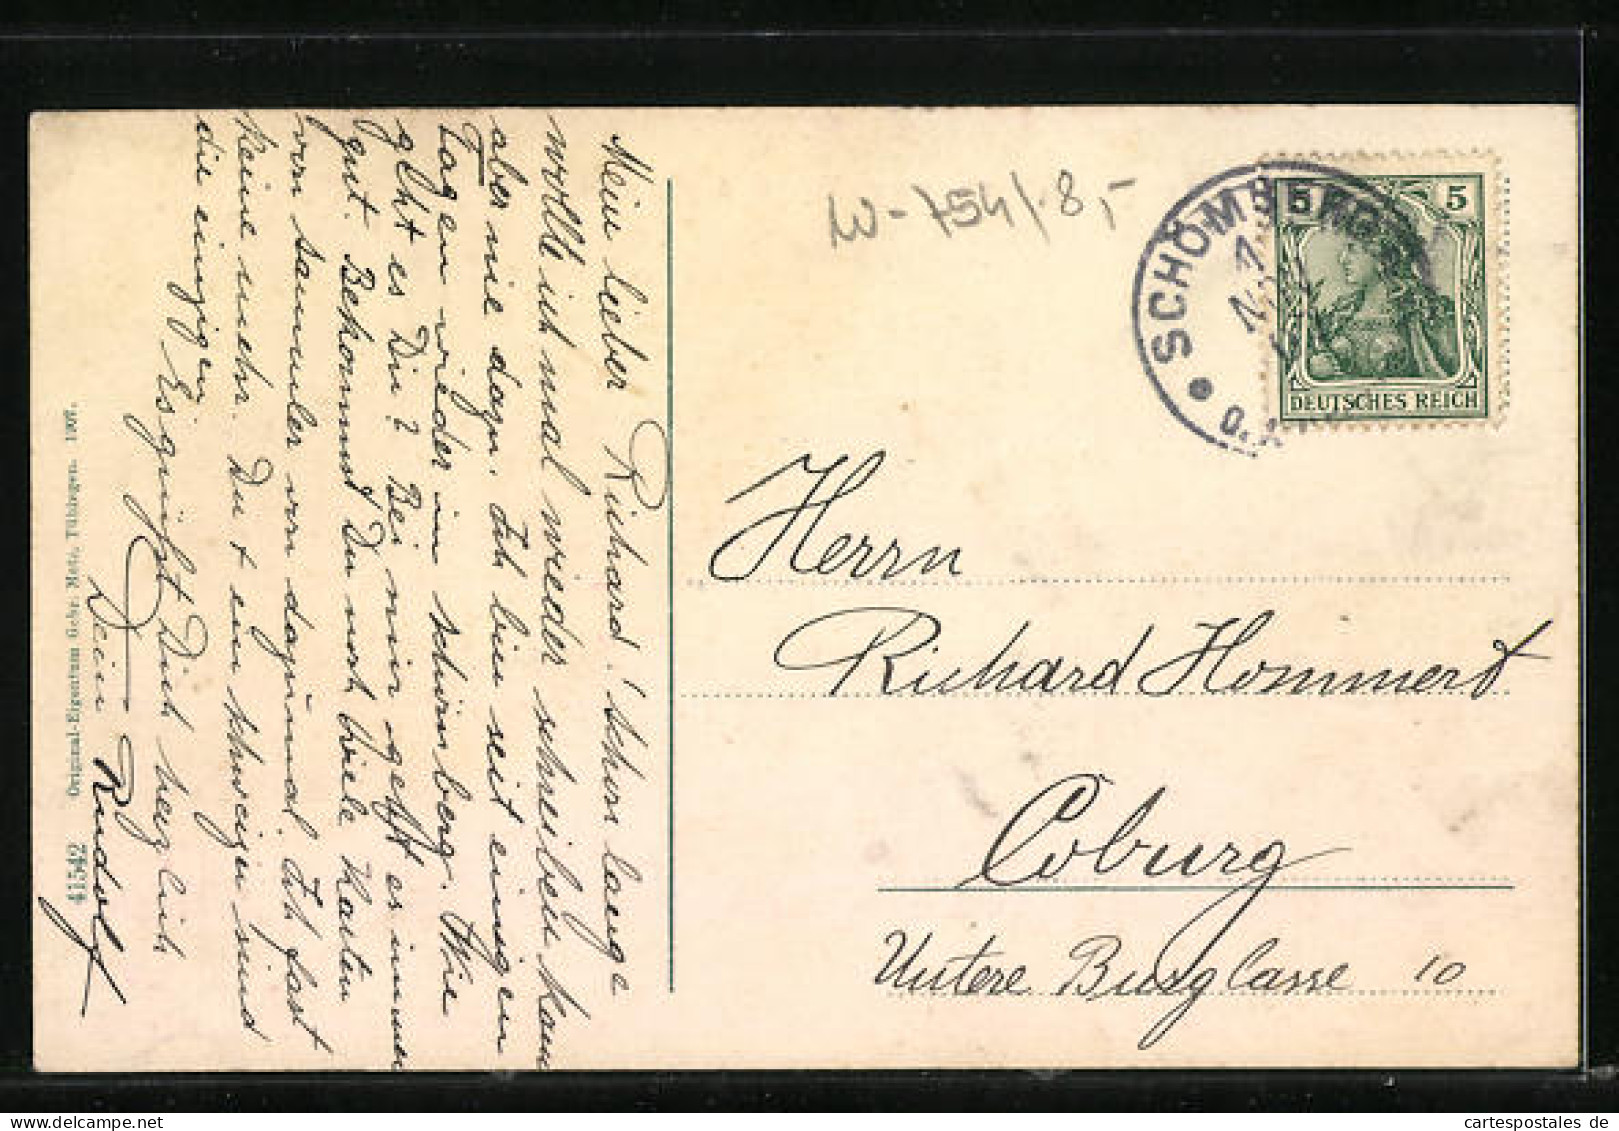 Mein lieber Richard! Schon lange
wollte ich mal wieder schreiben kam
aber nie dazu. Ich bin seit einigen
Tagen wieder in Schömberg. Wie
geht es Dir? Bei mir geht es immer
gut. Bekommst Du noch viele Karten
von Sammler von dazumal. Ich fast
keine mehr. Du + ein schweizer sind
die einzigen.
Es grüßt Dich herzlich
Dein Rudolf
41542 Original-Eigentum Gebr. Metz, Tübingen. 1907.
W-754/.8,-
SCHÖMB
5 5
DEUTSCHES REICH
Herrn
Richard Hommert
Coburg
Untere Burglasse 10
cartespostales-de